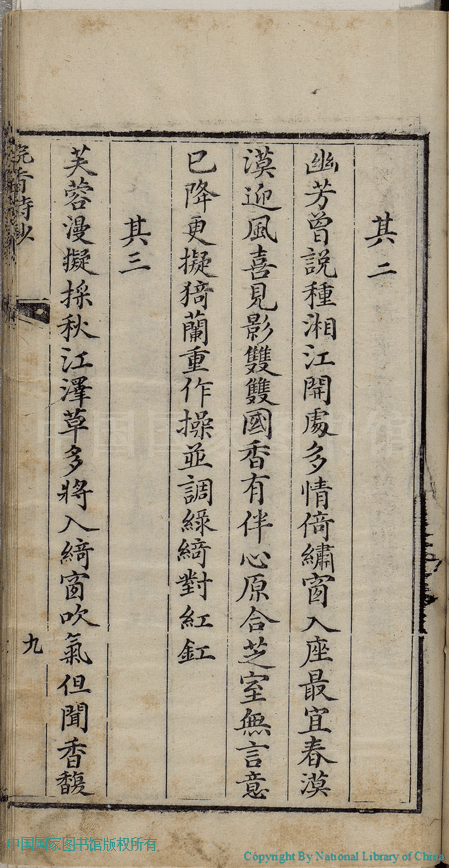 其二
幽芳曾說種湘江開處多情倚繡窗入座最宜春漠
漠迎風喜見影雙雙國香有伴心原合芝室無言意
已降更擬猗蘭重作操並調綠綺對紅釭
其三
芙蓉漫擬採秋江澤草多將入綺窗吹氣但聞香馥
晚香詩鈔
九
中国国家图书馆版权所有
Copyright By National Library of China